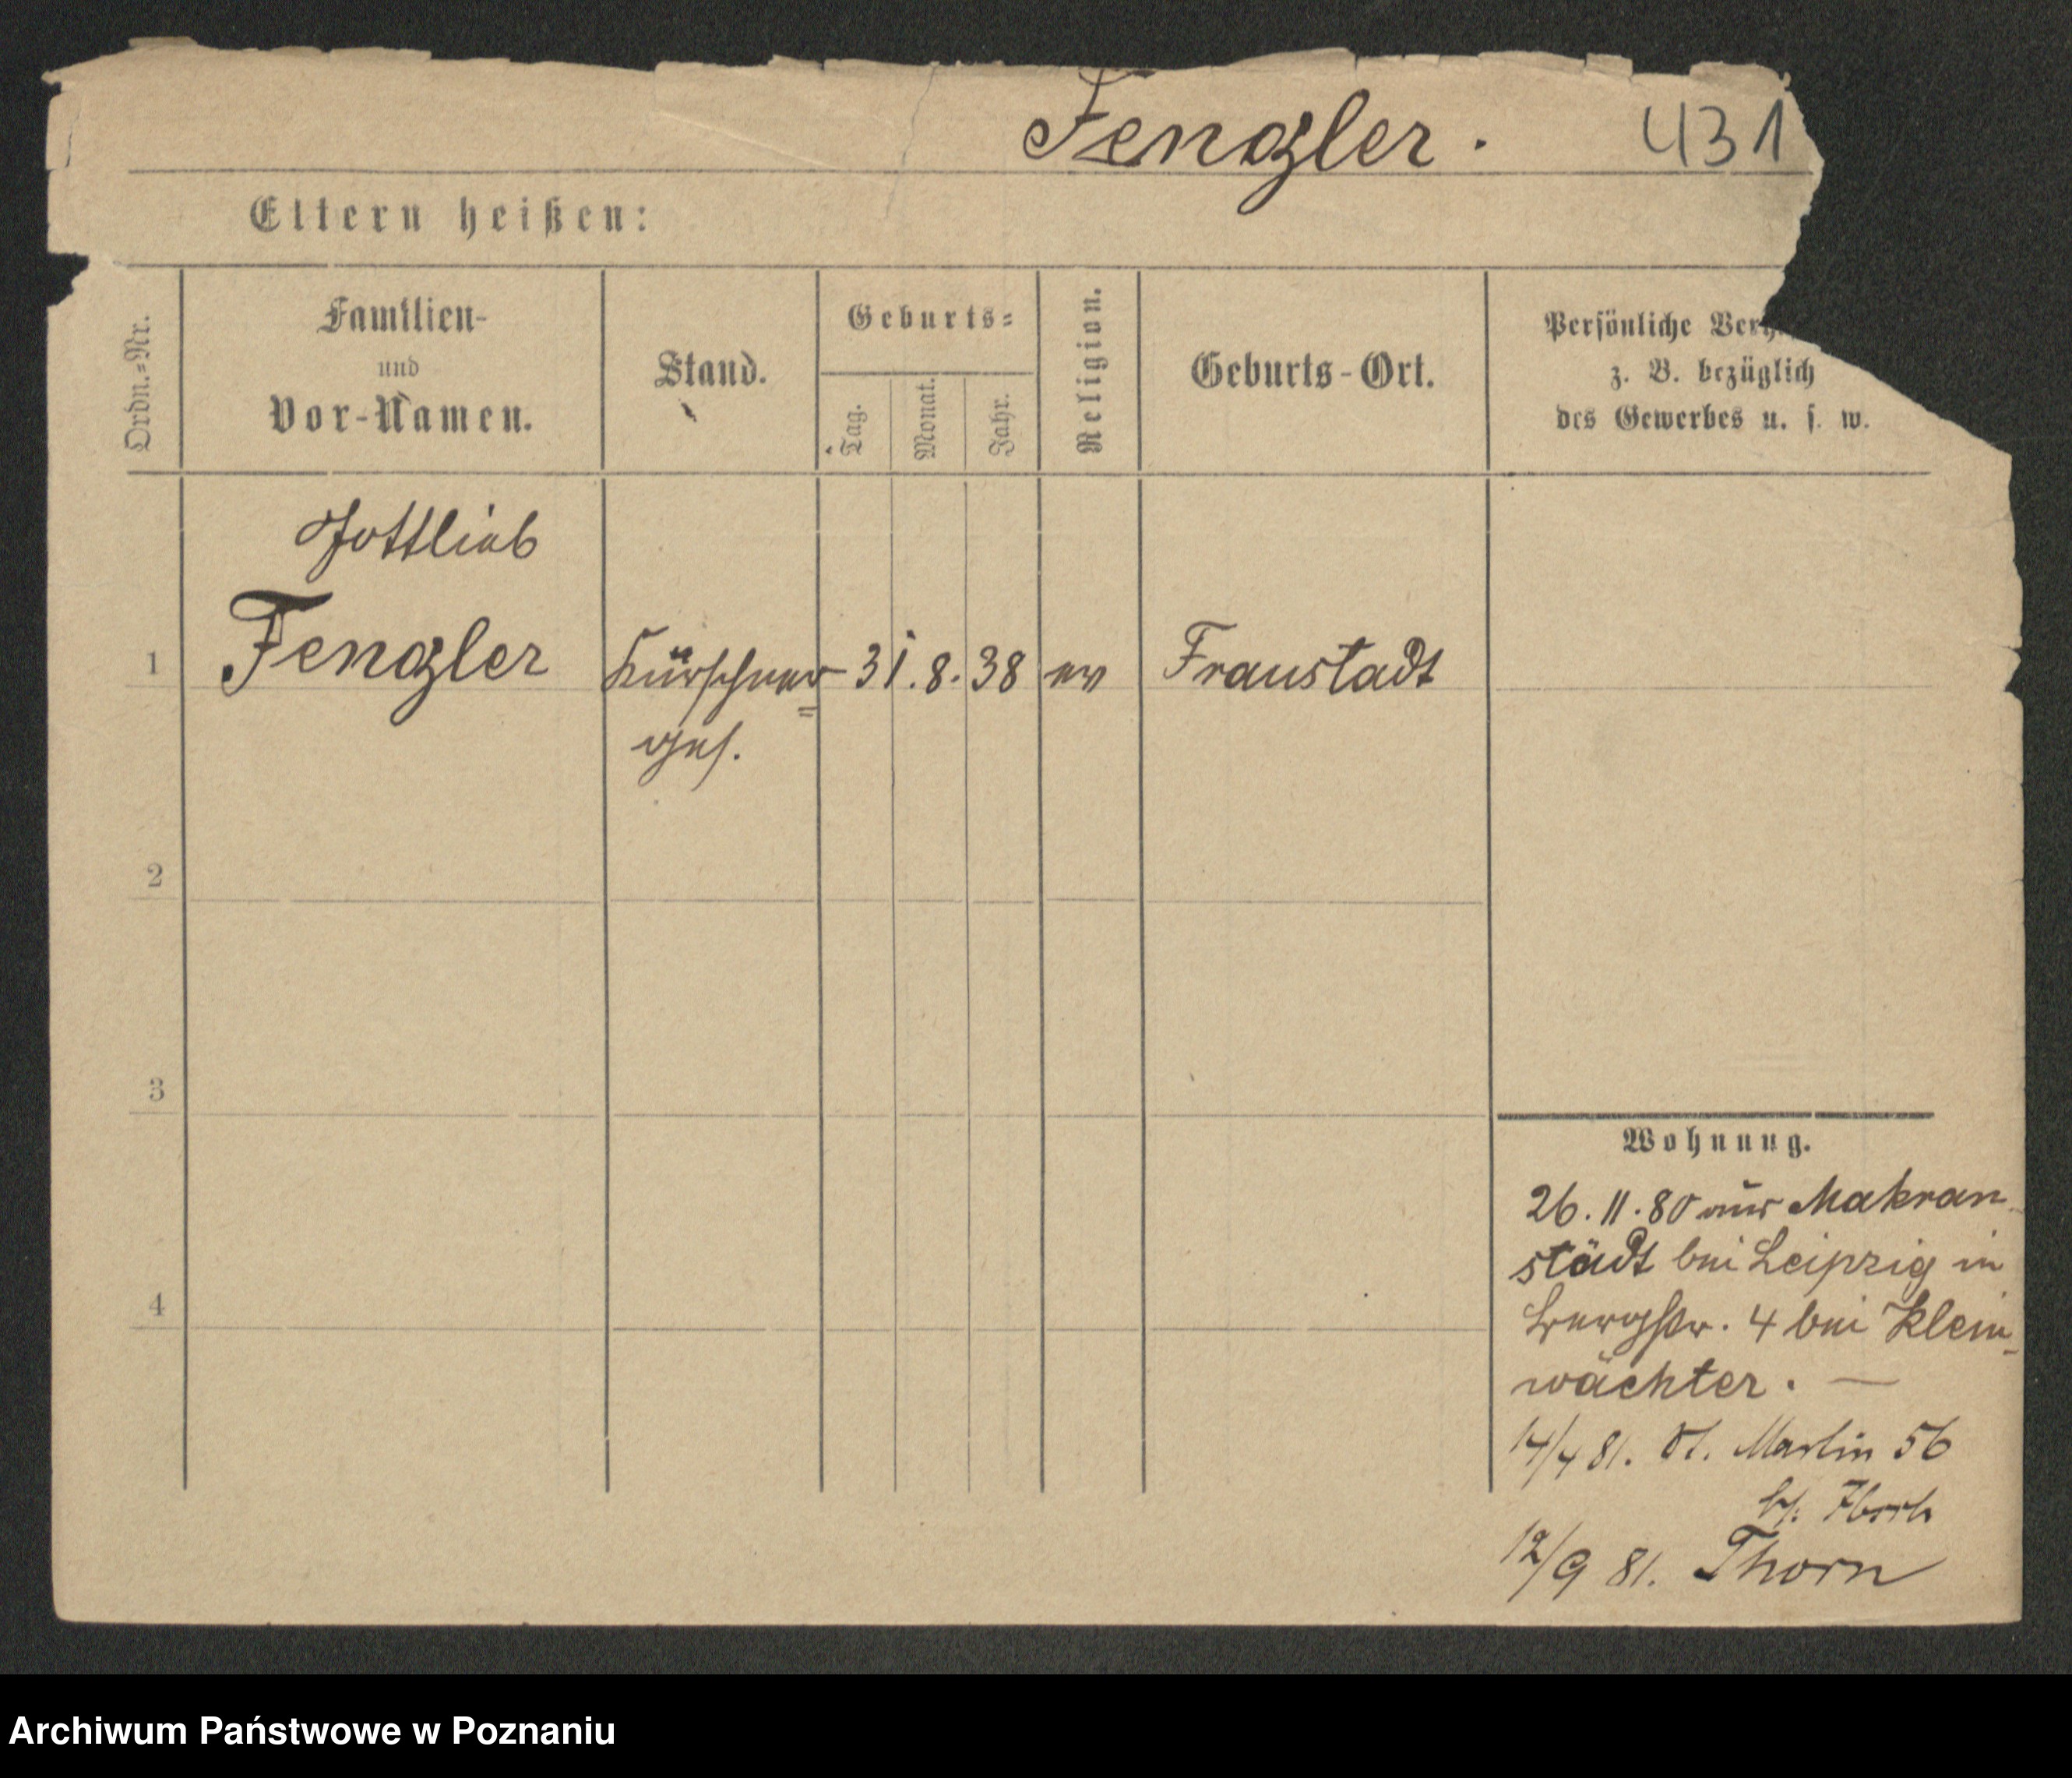 Fengler. 431
Eltern heißen:
Ordn.-Nr.
Familien-
und
Vor-Namen.
Stand.
Geburts-
Tag.
Monat.
Jahr.
Religion.
Geburts-Ort.
Persönliche
z. B. bezüglich
des Gewerbes u. s. w.
Gottlieb
1 Fengler Kürschner= 31. 8. 38 ev Fraustadt
ges.
2
3
4
Wohnung.
26. 11. 80 aus Makran-
städt bei Leipzig in
Bergstr. 4 bei Klein-
wächter. —
14/4 81. St. Martin 56
b/.
12/9 81. Thorn
Archiwum Państwowe w Poznaniu